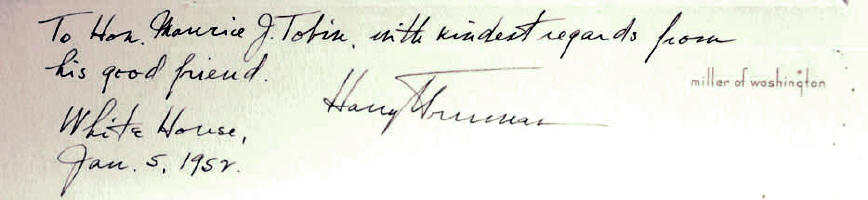 To Hon. Maurice J. Tobin, with kindest regards from
his good friend.
Harry Truman
miller of washington
White House,
Jan. 5, 1952.